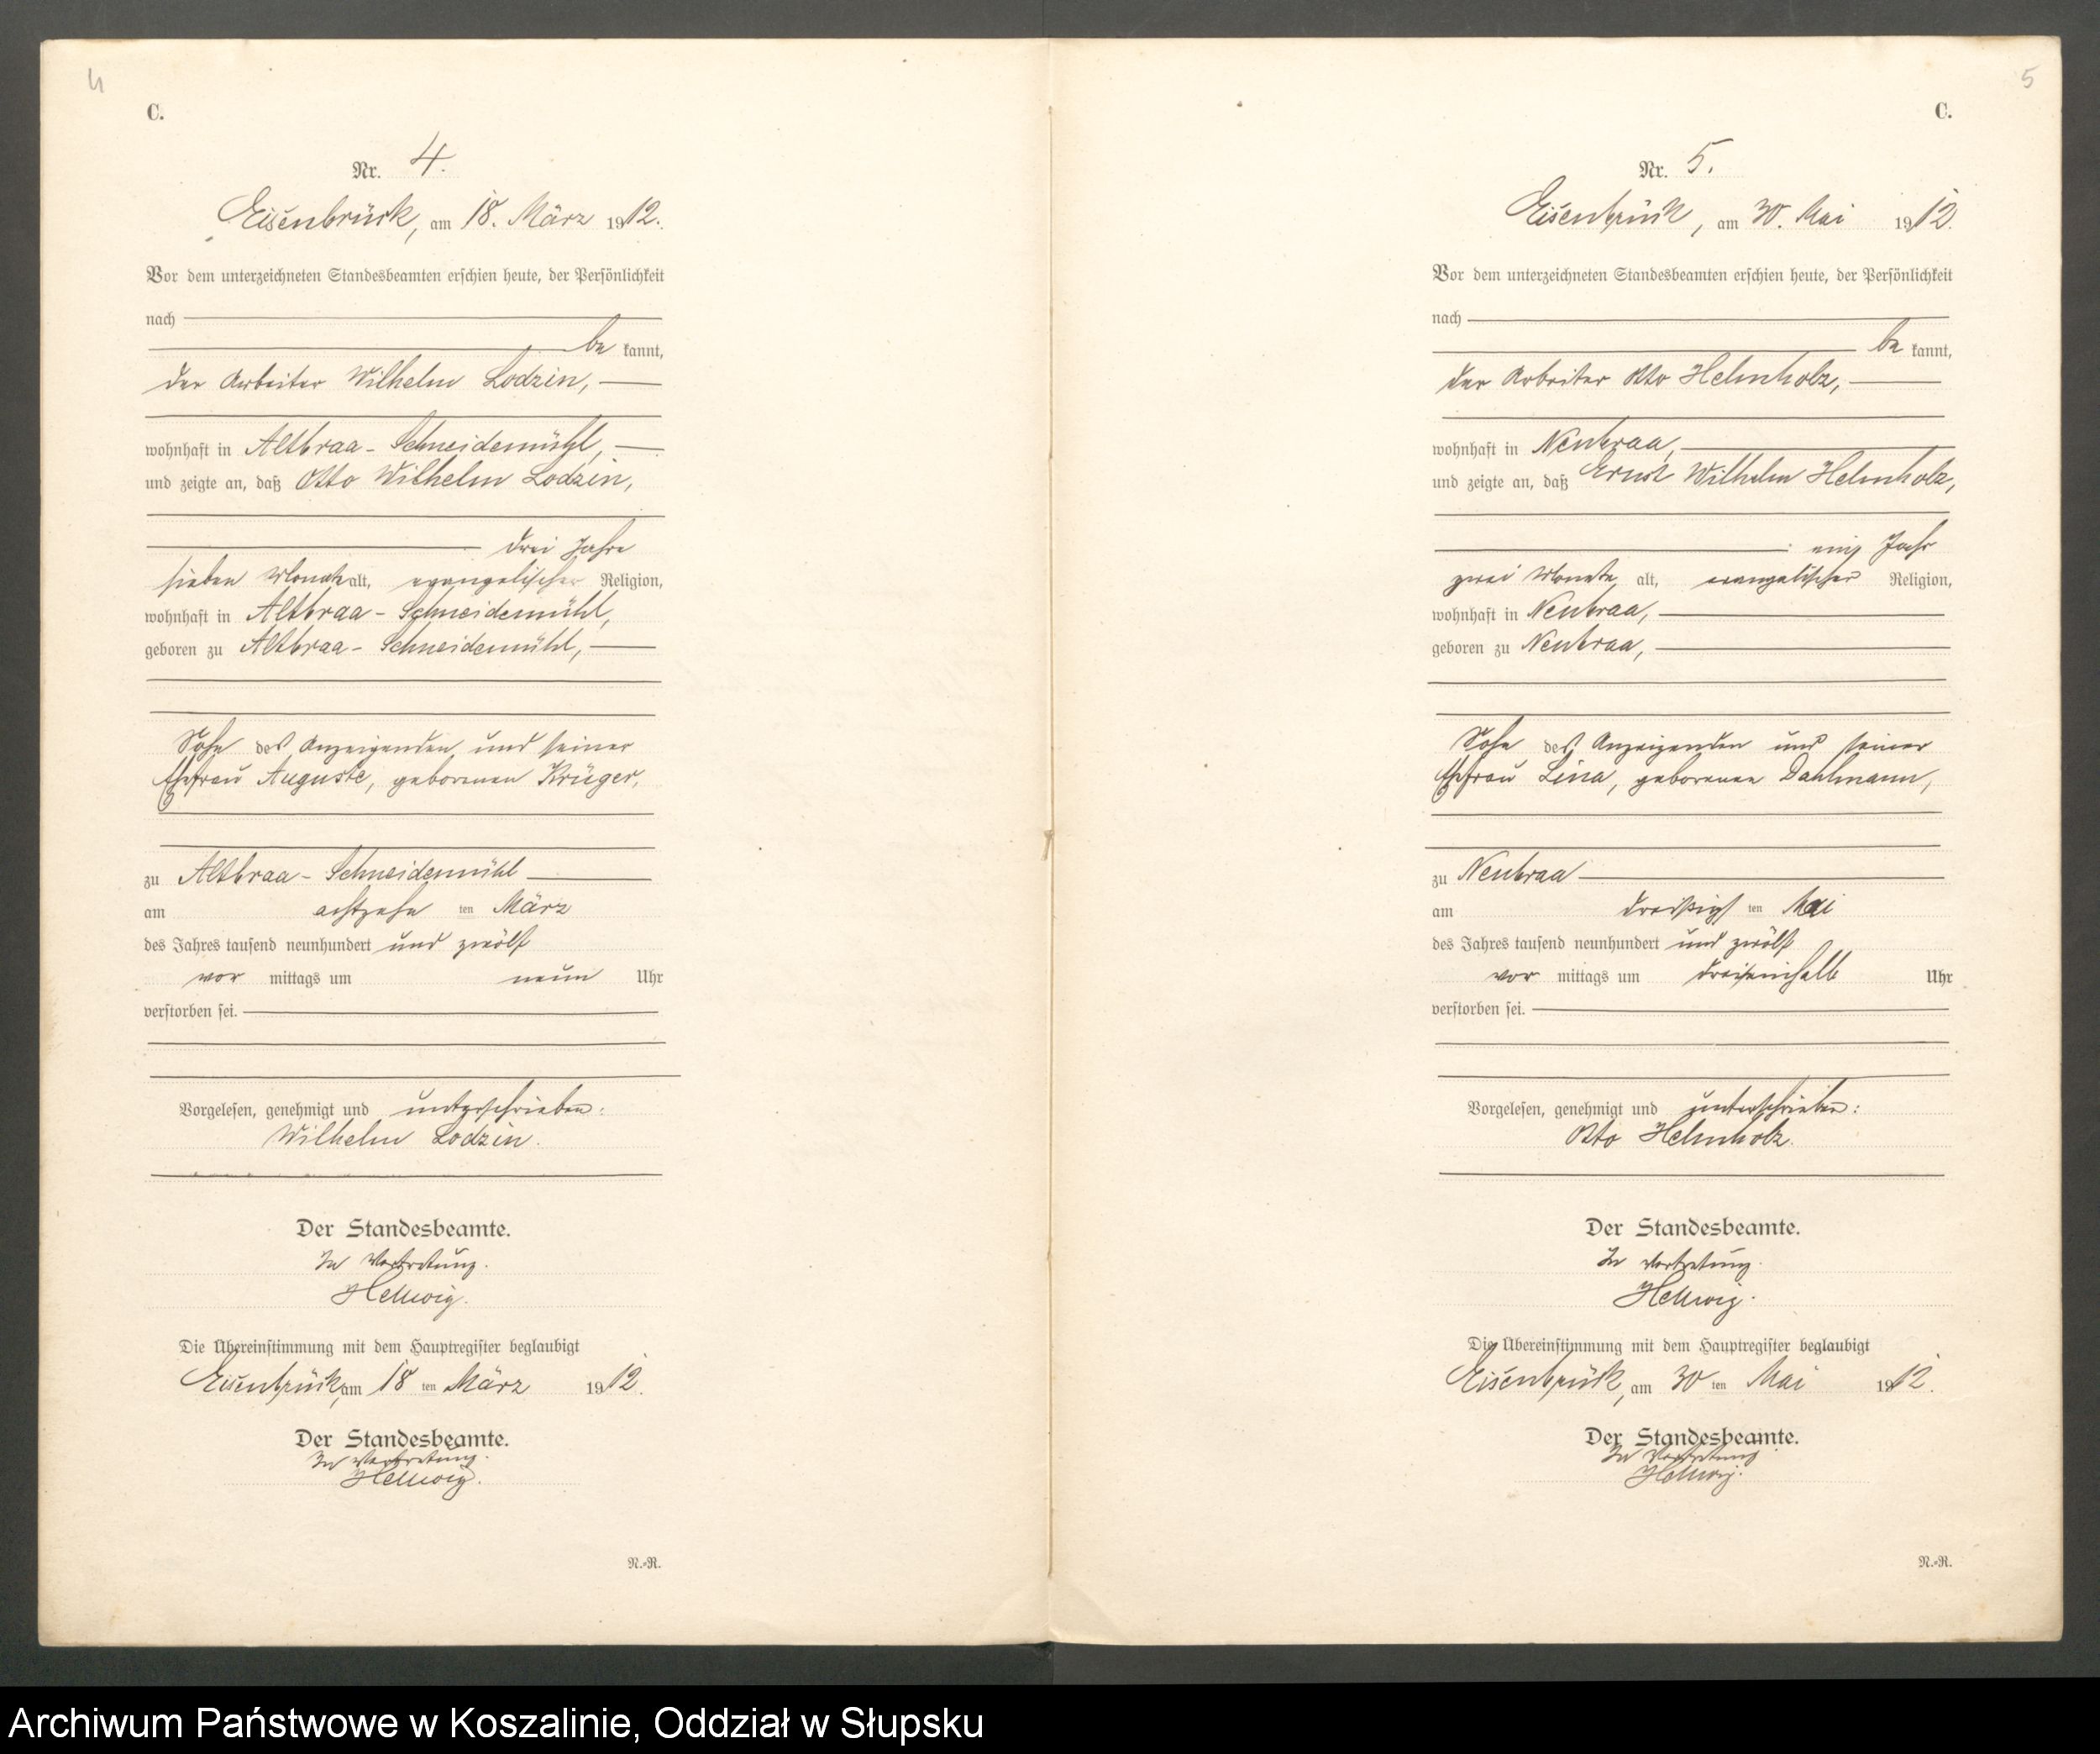 4
C.
Nr. 4.
Eisenbrück, am 18. März 1912.
Vor dem unterzeichneten Standesbeamten erschien heute, der Persönlichkeit
nach
be kannt,
der Arbeiter Wilhelm Lodzin,
wohnhaft in Altbraa-Schneidemühl,
und zeigte an, daß Otto Wilhelm Lodzin,
drei Jahre
sieben Monate alt, evangelischer Religion,
wohnhaft in Altbraa-Schneidemühl,
geboren zu Altbraa-Schneidemühl,
Sohn des Anzeigenden und seiner
Ehefrau Auguste, geborenen Krüger,
zu Altbraa-Schneidemühl
am achtzehn ten März
des Jahres tausend neunhundert und zwölf
vor mittags um neun Uhr
verstorben sei.
Vorgelesen, genehmigt und unterschrieben:
Wilhelm Lodzin.
Der Standesbeamte.
In Vertretung.
Hellwig.
Die Übereinstimmung mit dem Hauptregister beglaubigt
Eisenbrück, am 18 ten März 1912.
Der Standesbeamte.
In Vertretung.
Hellwig.
N.-R.
5
C.
Nr. 5.
Eisenbrück, am 30. Mai 1912.
Vor dem unterzeichneten Standesbeamten erschien heute, der Persönlichkeit
nach
be kannt,
der Arbeiter Otto Helmholz,
wohnhaft in Neubraa,
und zeigte an, daß Ernst Wilhelm Helmholz,
ein Jahr
zwei Monate alt, evangelischer Religion,
wohnhaft in Neubraa,
geboren zu Neubraa,
Sohn des Anzeigenden und seiner
Ehefrau Lina, geborenen Dahlmann,
zu Neubraa
am dreißigs ten Mai
des Jahres tausend neunhundert und zwölf
vor mittags um dreieinhalb Uhr
verstorben sei.
Vorgelesen, genehmigt und unterschrieben:
Otto Helmholz.
Der Standesbeamte.
In Vertretung.
Hellwig.
Die Übereinstimmung mit dem Hauptregister beglaubigt
Eisenbrück, am 30 ten Mai 1912.
Der Standesbeamte.
In Vertretung
Hellwig.
N.-R.
Archiwum Państwowe w Koszalinie, Oddział w Słupsku